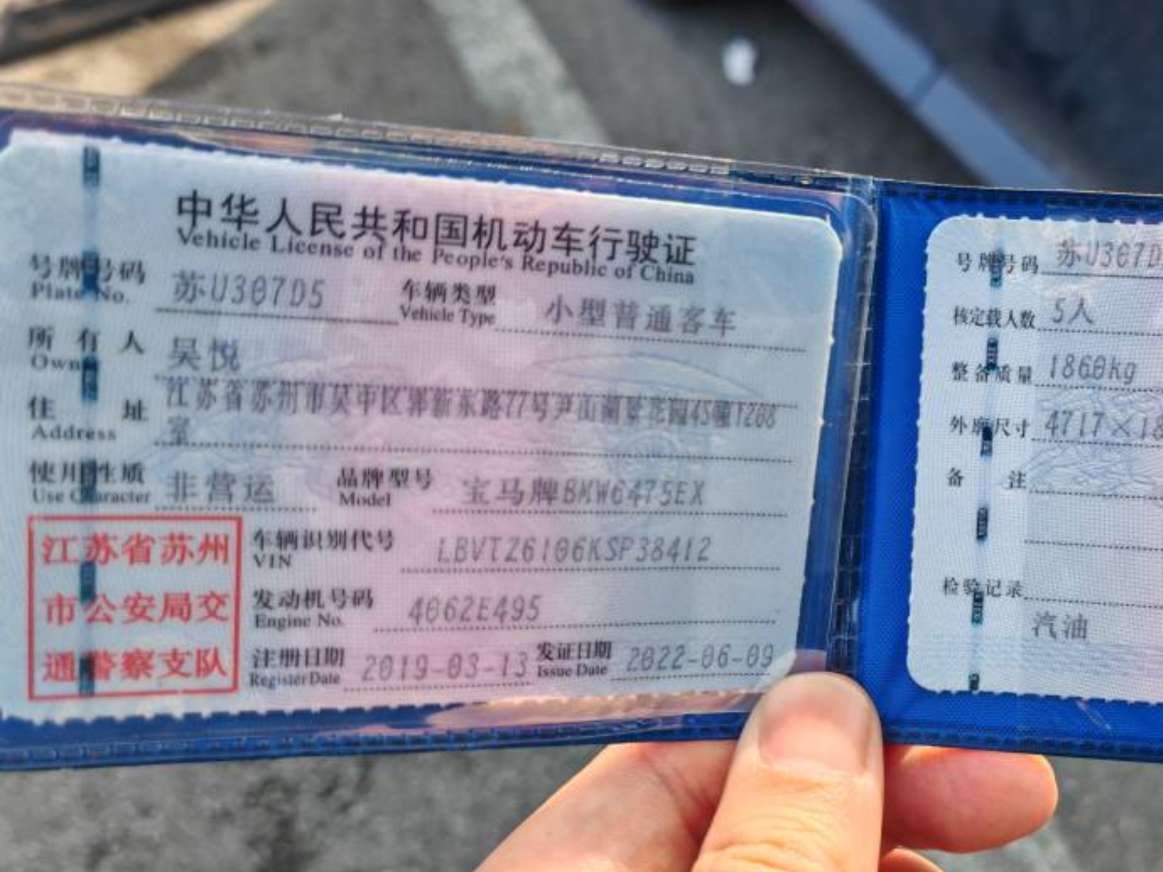 中华人民共和国机动车行驶证
Vehicle License of the People's Republic of China
号牌号码 苏U307D5 车辆类型 小型普通客车
Plate No. Vehicle Type
所有人 吴悦
Owner
住址 江苏省苏州市吴中区郭新东路77号尹山湖景花园45幢1208
Address 室
使用性质 非营运 品牌型号 宝马牌BMW6475EX
Use Character Model
江苏省苏州
市公安局交
通警察支队
车辆识别代号 LBVTZ6106KSP38412
VIN
发动机号码 4062E495
Engine No.
注册日期 2019-03-13 发证日期 2022-06-09
Register Date Issue Date
号牌号码 苏U307D
核定载人数 5人
整备质量 1860kg
外廓尺寸 4717×18
备注
检验记录
汽油